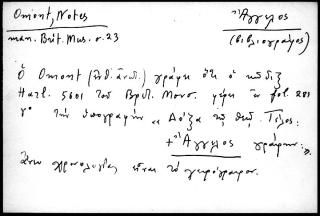 Omont, Notes
Ἄγγελος
man. Brit. Mus. σ. 23
(βιβλιογράφος)
Ὁ Omont (ἔνθ. ἀνωτ.) γράφει ὅτι ὁ κῶδιξ
Harl. 5601 τοῦ Βρετ. Μουσ. φέρει ἐν fol. 281
τὴν ὑπογραφὴν "Δόξα τῷ Θεῷ. Τέλος:
+ Ἄγγελος γράφων:
Ἄνευ χρονολογίας εἶναι τὸ χειρόγραφον.